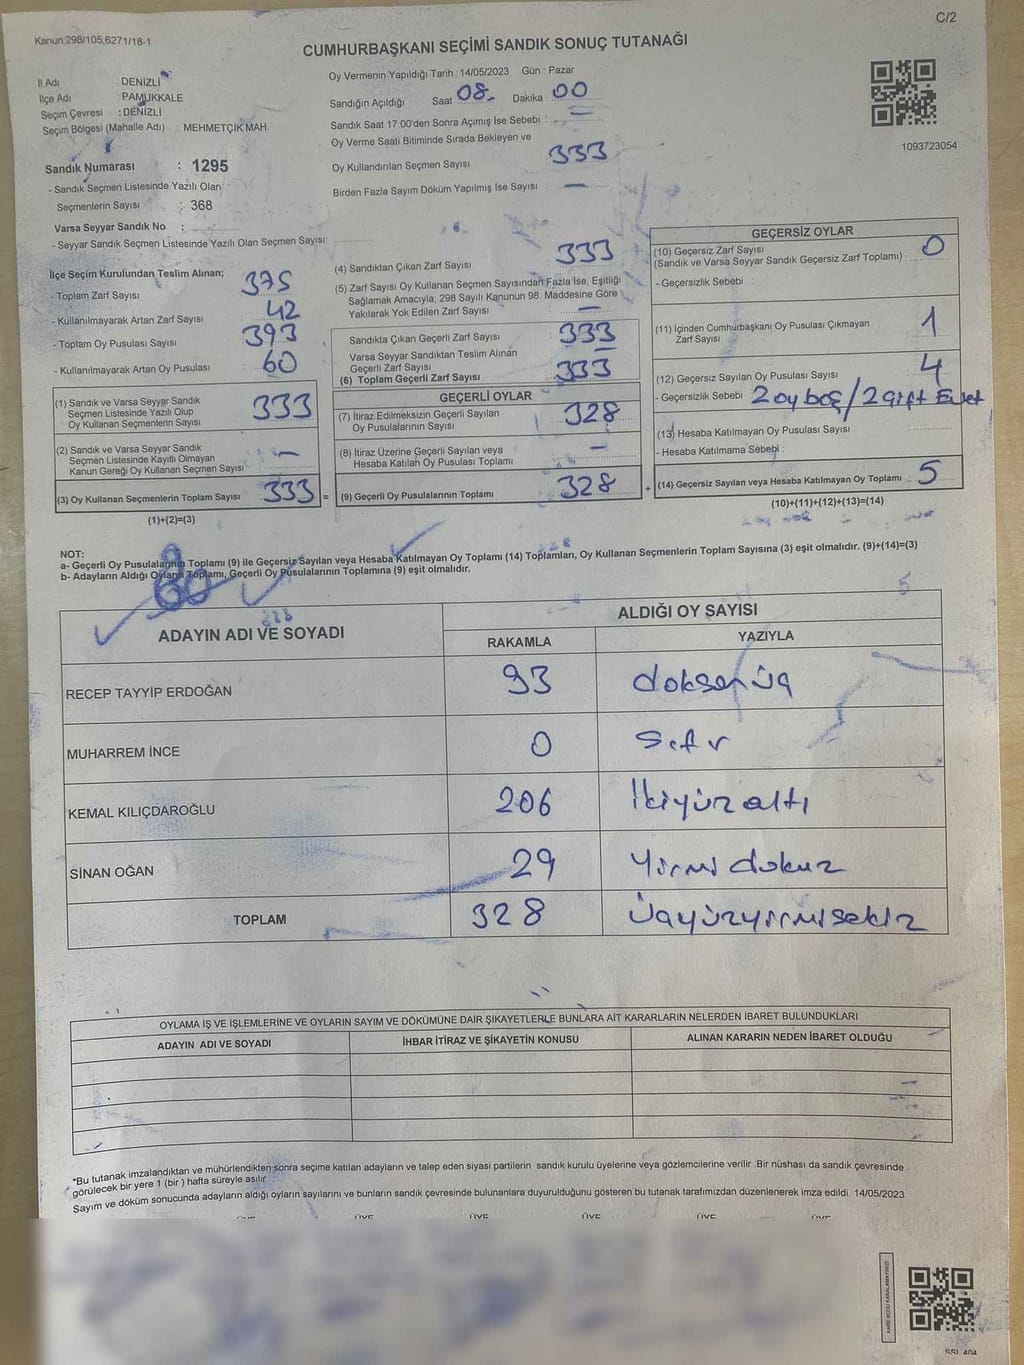 C/2
Kanun:298/105,6271/18-1
CUMHURBAŞKANI SEÇİMİ SANDIK SONUÇ TUTANAĞI
İl Adı : DENİZLİ
İlçe Adı : PAMUKKALE
Seçim Çevresi : DENİZLİ
Seçim Bölgesi (Mahalle Adı) MEHMETÇİK MAH.
Sandık Numarası : 1295
- Sandık Seçmen Listesinde Yazılı Olan
Seçmenlerin Sayısı : 368
Varsa Seyyar Sandık No :
- Seyyar Sandık Seçmen Listesinde Yazılı Olan Seçmen Sayısı
Oy Vermenin Yapıldığı Tarih : 14/05/2023 Gün : Pazar
Sandığın Açıldığı Saat 08 Dakika 00
Sandık Saat 17:00'den Sonra Açımış İse Sebebi : —
Oy Verme Saati Bitiminde Sırada Bekleyen ve
Oy Kullandırılan Seçmen Sayısı 333
Birden Fazla Sayım Döküm Yapılmış İse Sayısı —
1093723054
İlçe Seçim Kurulundan Teslim Alınan;
- Toplam Zarf Sayısı 375
- Kullanılmayarak Artan Zarf Sayısı 42
- Toplam Oy Pusulası Sayısı 393
- Kullanılmayarak Artan Oy Pusulası 60
(1) Sandık ve Varsa Seyyar Sandık
Seçmen Listesinde Yazılı Olup
Oy Kullanan Seçmenlerin Sayısı 333
(2) Sandık ve Varsa Seyyar Sandık
Seçmen Listesinde Kayıtlı Olmayan
Kanun Gereği Oy Kullanan Seçmen Sayısı —
(3) Oy Kullanan Seçmenlerin Toplam Sayısı 333 =
(1)+(2)=(3)
(4) Sandıktan Çıkan Zarf Sayısı 333
(5) Zarf Sayısı Oy Kullanan Seçmen Sayısından Fazla İse, Eşitliği
Sağlamak Amacıyla; 298 Sayılı Kanunun 98. Maddesine Göre
Yakılarak Yok Edilen Zarf Sayısı —
Sandıkta Çıkan Geçerli Zarf Sayısı 333
Varsa Seyyar Sandıktan Teslim Alınan
Geçerli Zarf Sayısı —
(6) Toplam Geçerli Zarf Sayısı 333
GEÇERLİ OYLAR
(7) İtiraz Edilmeksizin Geçerli Sayılan
Oy Pusulalarının Sayısı 328
(8) İtiraz Üzerine Geçerli Sayılan veya
Hesaba Katılan Oy Pusulası Toplamı —
(9) Geçerli Oy Pusulalarının Toplamı 328 +
GEÇERSİZ OYLAR
(10) Geçersiz Zarf Sayısı
(Sandık ve Varsa Seyyar Sandık Geçersiz Zarf Toplamı) : 0
- Geçersizlik Sebebi :
(11) İçinden Cumhurbaşkanı Oy Pusulası Çıkmayan
Zarf Sayısı 1
(12) Geçersiz Sayılan Oy Pusulası Sayısı 4
- Geçersizlik Sebebi 2 oy boş / 2 çift Evet
(13) Hesaba Katılmayan Oy Pusulası Sayısı
- Hesaba Katılmama Sebebi :
(14) Geçersiz Sayılan veya Hesaba Katılmayan Oy Toplamı : 5
(10)+(11)+(12)+(13)=(14)
NOT:
a- Geçerli Oy Pusulalarının Toplamı (9) ile Geçersiz Sayılan veya Hesaba Katılmayan Oy Toplamı (14) Toplamları, Oy Kullanan Seçmenlerin Toplam Sayısına (3) eşit olmalıdır. (9)+(14)=(3)
b- Adayların Aldığı Oyların Toplamı, Geçerli Oy Pusulalarının Toplamına (9) eşit olmalıdır.
ADAYIN ADI VE SOYADI
ALDIĞI OY SAYISI
RAKAMLA YAZIYLA
RECEP TAYYİP ERDOĞAN 93 doksanüç
MUHARREM İNCE 0 Sıfır
KEMAL KILIÇDAROĞLU 206 İkiyüzaltı
SİNAN OĞAN 29 Yirmi dokuz
TOPLAM 328 üçyüzyirmisekiz
OYLAMA İŞ VE İŞLEMLERİNE VE OYLARIN SAYIM VE DÖKÜMÜNE DAİR ŞİKAYETLERLE BUNLARA AİT KARARLARIN NELERDEN İBARET BULUNDUKLARI
ADAYIN ADI VE SOYADI İHBAR İTİRAZ VE ŞİKAYETİN KONUSU ALINAN KARARIN NEDEN İBARET OLDUĞU
*Bu tutanak imzalandıktan ve mühürlendikten sonra seçime katılan adayların ve talep eden siyasi partilerin sandık kurulu üyelerine veya gözlemcilerine verilir. Bir nüshası da sandık çevresinde
görülecek bir yere 1 (bir) hafta süreyle asılır.
Sayım ve döküm sonucunda adayların aldığı oyların sayılarını ve bunların sandık çevresinde bulunanlara duyurulduğunu gösteren bu tutanak tarafımızdan düzenlenerek imza edildi. 14/05/2023